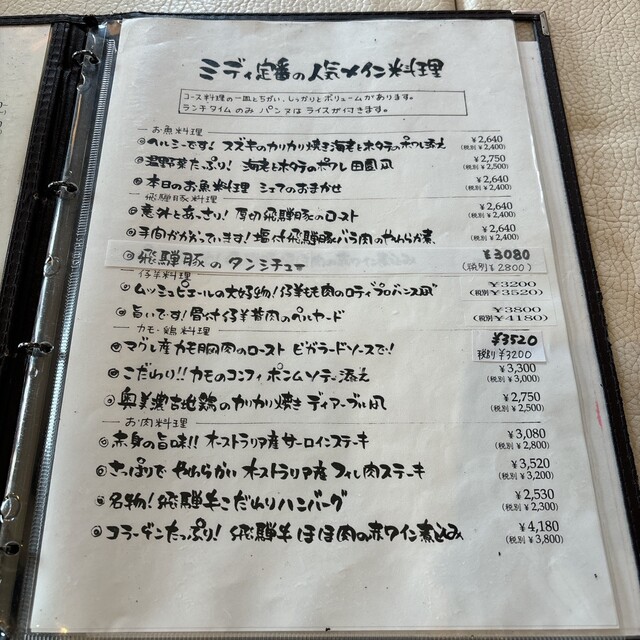 ミディ定番の人気メイン料理
コース料理の一皿とちがい、しっかりとボリュームがあります。
ランチタイムのみ パン又は ライスが付きます。
お魚料理
◎ヘルシーです！ スズキのカリカリ焼き海老とホタテのポワレ添え ¥2,640
(税別 ¥2,400)
◎温野菜たっぷり！ 海老とホタテのポワレ 田園風 ¥2,750
(税別 ¥2,500)
◎本日のお魚料理 シェフのおまかせ ¥2,640
(税別 ¥2,400)
飛騨豚料理
◎意外とあっさり！ 厚切飛騨豚のロースト ¥2,640
(税別 ¥2,400)
◎手間がかかっています！塩付飛騨豚バラ肉のやわらか煮 ¥2,640
(税別 ¥2,400)
◎飛騨豚のタンシチュー ¥3080
(税別¥2800)
仔羊料理
◎ムッシュピエールの大好物！仔羊もも肉のロティプロバンス風 ¥3200
(税別¥3520)
◎旨いです！骨付仔羊背肉のペルヤード ¥3800
(税別¥4180)
カモ・鶏料理
◎マグレ産カモ胸肉のロースト ビガラードソースで！ ¥3520
税別 ¥3200
◎こだわり！！カモのコンフィ ポンムソテー添え ¥3,300
(税別 ¥3,000)
◎奥美濃古地鶏のカリカリ焼き ディアーブル風 ¥2,750
(税別 ¥2,500)
お肉料理
◎赤身の旨味！！オーストラリア産サーロインステーキ ¥3,080
(税別 ¥2,800)
◎さっぱりで やわらかい オーストラリア産フィレ肉ステーキ ¥3,520
(税別 ¥3,200)
◎名物！飛騨牛こだわりハンバーグ ¥2,530
(税別 ¥2,300)
◎コラーゲンたっぷり！ 飛騨牛ほほ肉の赤ワイン煮込み ¥4,180
(税別 ¥3,800)